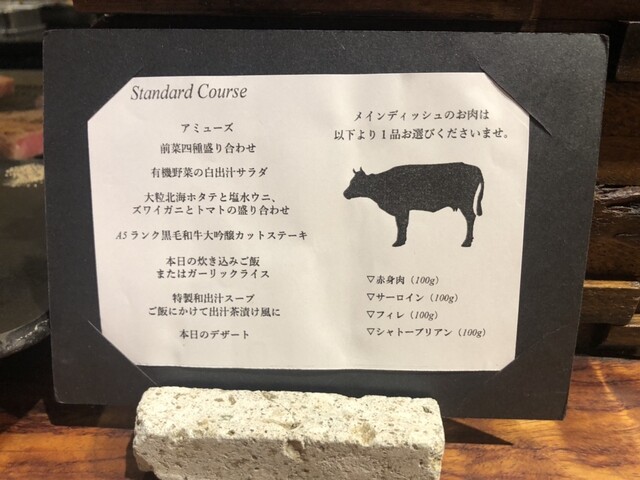 Standard Course
アミューズ
前菜四種盛り合わせ
有機野菜の白出汁サラダ
大粒北海ホタテと塩水ウニ、
ズワイガニとトマトの盛り合わせ
A5ランク黒毛和牛大吟醸カットステーキ
本日の炊き込みご飯
またはガーリックライス
特製和出汁スープ
ご飯にかけて出汁茶漬け風に
本日のデザート
メインディッシュのお肉は
以下より1品お選びくださいませ。
▽赤身肉（100g）
▽サーロイン（100g）
▽フィレ（100g）
▽シャトーブリアン（100g）